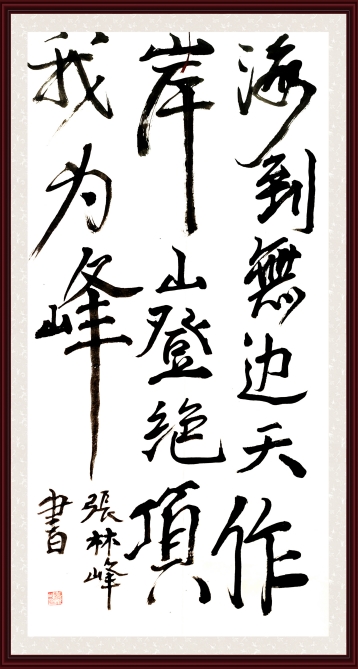 海到無边天作
岸山登絶頂
我为峰
張林峰
書